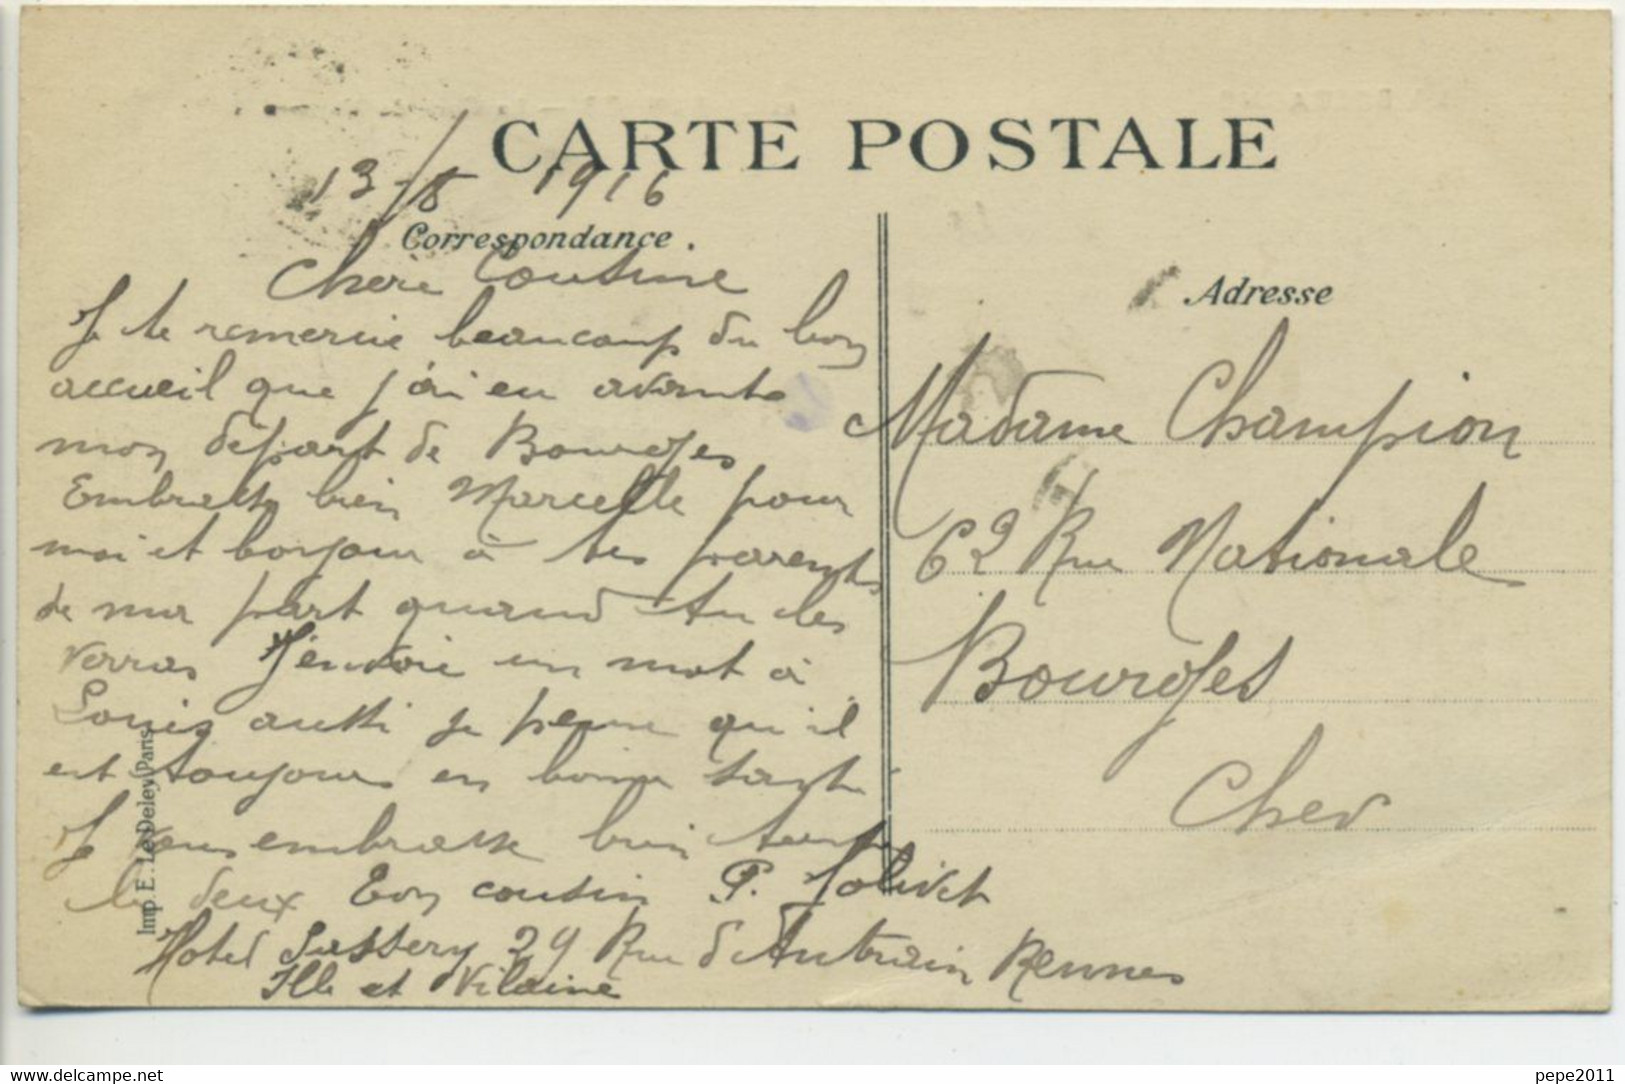 CARTE POSTALE
13/8 1916
Correspondance.
Chère Cousine
Je te remercie beaucoup du bon
accueil que j'ai eu avant
mon départ de Bourges
Embrasse bien Marcelle pour
moi et bonjour à tes parents
de ma part quand tu les
verras J'envoie un mot à
Louis aussi je pense qu'il
est toujours en bonne santé
Je vous embrasse bien toutes
les deux Ton cousin P. Jolivet
Hotel 29 Rue d'Antrain Rennes
Ille et Vilaine
Imp. E. Le Deley, Paris
Adresse
Madame Champion
62 Rue Nationale
Bourges
Cher
delcampe.net
pepe2011